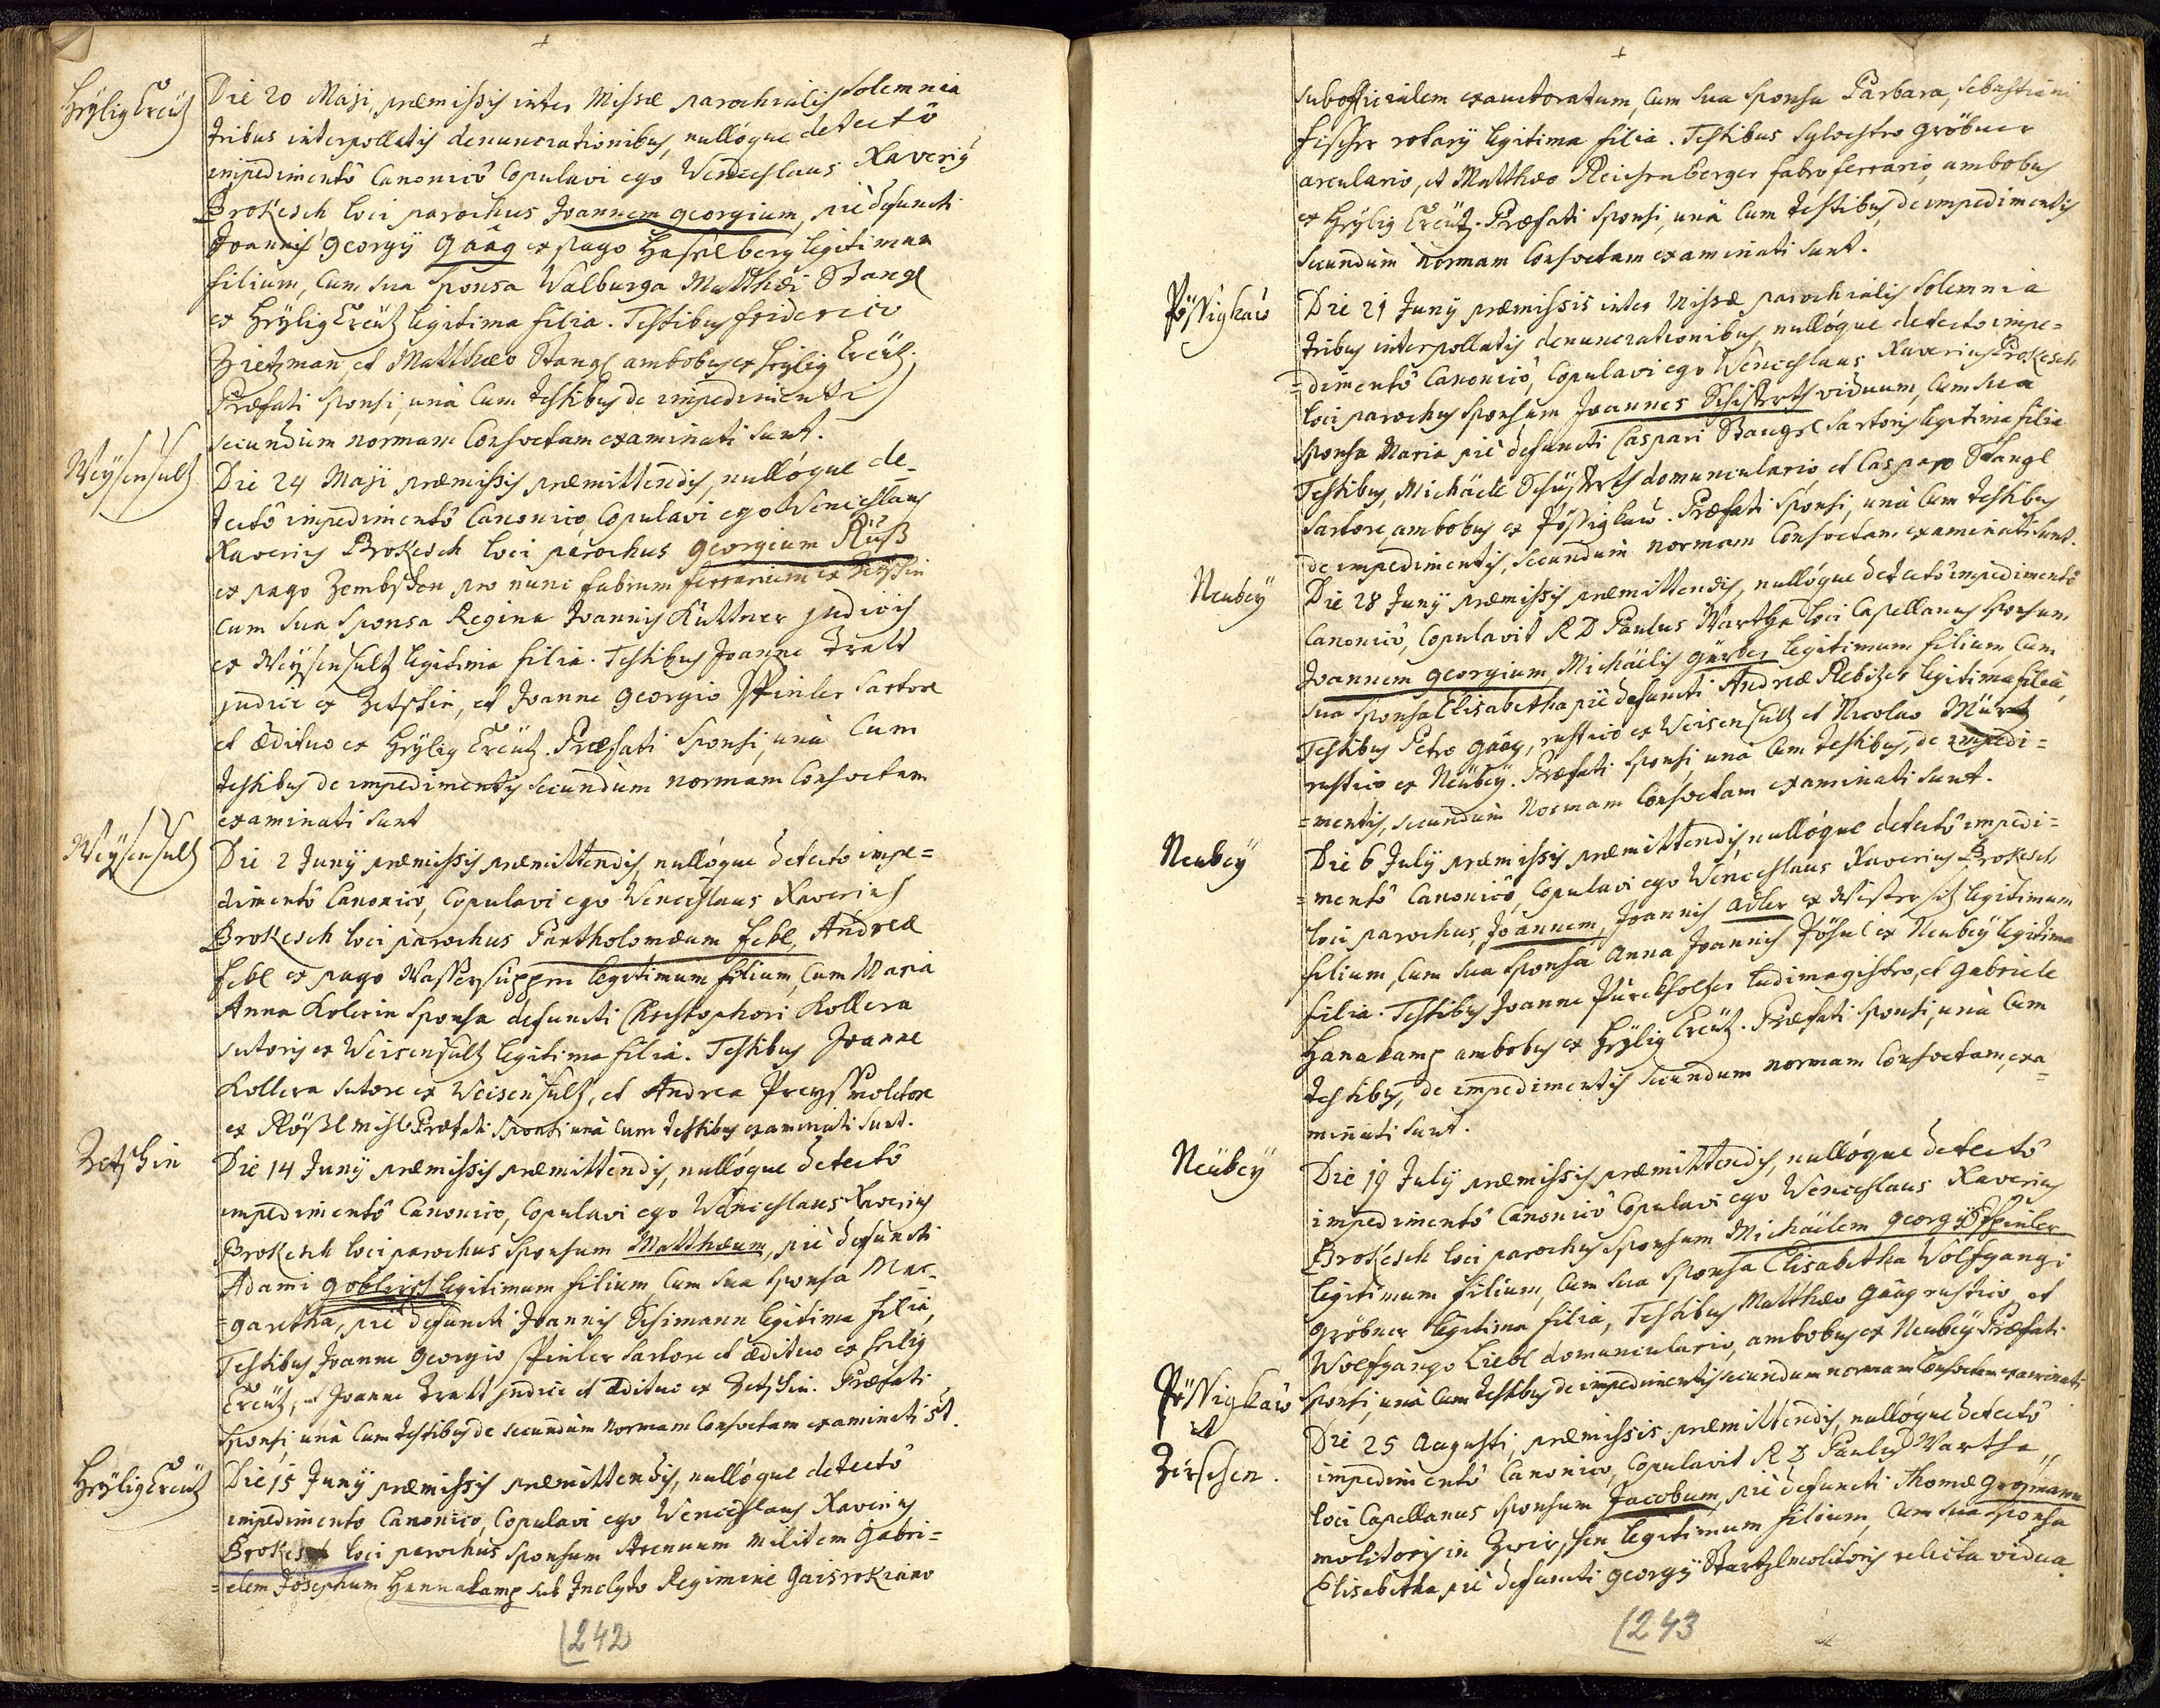 Heÿlig Creütz
Die 20 Maji, præmissis inter Missæ parochialis solemnia
tribus interpollatis denunciationibus, nullóque detectô
impedimentô Canonicô Copulavi ego Wenceslaus Xaverius
Brokesch loci parochus Joannem georgium, piè defuncti
Joannis georgÿ gääg ex pago Haselberg legitimum
filium, cum sua sponsa Walburga Matthæi Stangl
ex Heÿlig Creütz legitima filia. Testibus friderico
Zietzman, et Matthæo Stangl ambobus ex heÿlig Creütz.
Præfati sponsi, unà cum testibus de impedimentis
secundum normam Consvetam examinati sunt.
Weÿsensultz
Die 24 Maji præmissis præmittendis, nullóque de-
tectô impedimentô Canonico, Copulavi ego Wenceslaus
Xaverius Brokesch loci parochus georgium Ruß
ex pago Zembschen pro nunc fabrum ferrarium ex Zetschin
cum sua sponsa Regina Joannis Kuttner judicis
ex Weÿsensultz legitima filia. Testibus Joanne Tralt
judice ex Zetschin, et Joanne georgio Spinler sartore
et ædituo ex Heÿlig Creütz. Præfati sponsi, unà cum
testibus de impedimentis secundum normam Consvetam
examinati sunt
Weÿsensultz
Die 2 Junÿ præmissis præmittendis, nullóque detecto impe=
dimentô Canonicô, Copulavi ego Wenceslaus Xaverius
Brokesch loci parochus Partholomæum febl, Andreæ
febl ex pago Wassersuppen legitimum filium, cum Maria
Anna Kolerin sponsa defuncti Christophori Kollera
sutoris ex Weisensultz legitima filia. Testibus Joanne
Kollera sutore ex Weisensultz, et Andrea Preÿs molitore
ex Rößlmihl Præfati sponsi unà cum testibus examinati sunt.
Zetschin
Die 14 Junÿ præmissis præmittendis, nullóque detectô
impedimentô Canonico, Copulavi ego Wenceslaus Xaverius
Brokesch loci parochus sponsum Matthæum, piè defuncti
Adami goblirsch legitimum filium, cum sua sponsa Mar-
=garetha, piè defuncti Joannis Schimann legitima filia,
Testibus Joanne georgio Spinler sartore et ædituo ex heilig
Creütz, et Joanne Tralt judice et ædituo ex Zetschin. Præfati
sponsi, unà cum testibus de secundùm normam Consvetam examinati st.
Heÿlig Creütz
Die 15 Junÿ præmissis præmittendis, nullóque detectô
impedimento Canonico, Copulavi ego Wenceslaus Xaverius
Brokesch loci parochus sponsum strenuum militem Gabri=
=elem Josephum Hannakamp sub Inclyto Regimine Gaisrokiano
242
subofficialem exauctoratum, cum sua sponsa Barbara, Sebastiani
fischer rotarÿ legitima filia. Testibus Sylvestro gröbner
arculario, et Matthæo Reichenberger fabro ferrario, ambobus
ex Heÿlig Creütz. Præfati sponsi, unà cum testibus, de impedimentis
secundum normam Consvetam examinati sunt.
Pössigkaw
Die 21 Junÿ præmissis inter Missæ parochialis solemnia
tribus interpollatis denunciationibus, nullóque detecto impe=
=dimentô Canonicô, Copulavi ego Wenceslaus Xaverius Brokesch
loci parochus sponsum Joannes Schisterts viduum, cum sua
sponsa Maria piè defuncti Caspari Stangel sartoris legitima filia
Testibus, Michäele Schisterts domunculario et Casparo Stangl
sartore, ambobus ex Pössigkaw. Præfati sponsi, unà cum testibus
de impedimentis, secundum normam Consvetam examinati sunt.
Neubeÿ
Die 28 Junÿ præmissis præmittendis, nullóque detectô impedimentô
Canonicô, Copulavit R D Paulus Wartha loci Capellanus sponsum
Joannem georgium, Michäelis gerber legitimum filium, cum
sua sponsa Elisabetha piè defuncti Andreæ Rebitzer legitima filia,
Testibus Petro gääg, rustico ex Weisensultz et Nicolao Mürtz
rustico ex Neubeÿ. Præfati sponsi unà cum testibus, de impedi=
=mentis, secundùm Normam Consvetam examinati sunt.
Neubeÿ
Die 6 Julÿ præmissis præmittendis, nullóque detectô impedi=
=mentô Canonicô, Copulavi ego Wenceslaus Xaverius Brokesch
loci parochus, Joannem, Joannis adler ex Wistersitz legitimum
filium, cum sua sponsa Anna Joannis Pöhnl ex Neubeÿ legitima
filia. Testibus Joanne Pürckholtzer ludimagistro, et gabriele
Hanakamp ambobus ex Heÿlig Creütz. Præfati sponsi, unà cum
testibus, de impedimentis secundum normam Consvetam, exa=
minati sunt.
Neübeÿ
Die 19 Julÿ præmissis præmittendis, nullóque detectô
impedimentô Canonicô Copulavi ego Wenceslaus Xaverius
Brokesch loci parochus sponsum Michäelem georgÿ Spinler
legitimum filium, cum sua sponsa Elisabetha Wolfgangi
gröbner legitima filia, Testibus Matthæo gääg rustico, et
Wolfgango Liebl domunculario, ambobus ex Neubeÿ Præfati
sponsi, unà cum testibus de impedimentis secundum normam Consvetam examinati
Pössigkaw
et
Zirschen.
Die 25 Augusti, præmissis præmittendis, nullóque detectô
impedimentô Canonico, Copulavit R D Paulus Wartha
loci Capellanus sponsum Jacobum, piè defuncti Thomæ grosmann
molitoris in Zwirschen legitimum filium, cum sua sponsa
Elisabetha piè defuncti georgÿ Startzl molitoris relicta vidua
243